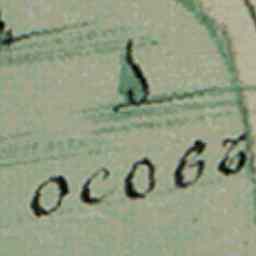 особъ